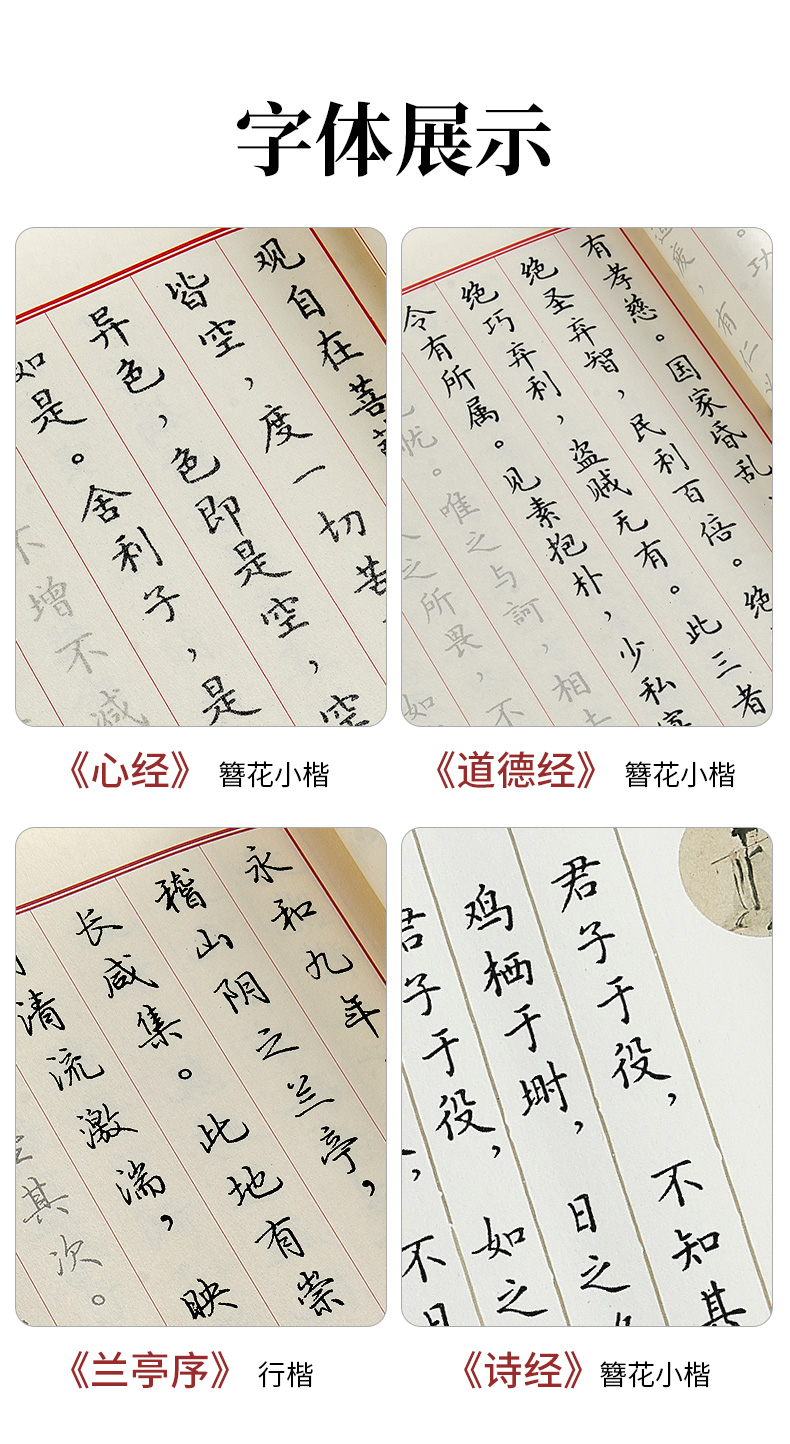 字体展示
观自在菩
皆空，度一切苦
异色，色即是空，空
如是。舍利子，是
不增不减
《心经》 簪花小楷
功
有仁
有孝慈。国家昏乱
绝圣弃智，民利百倍。绝
绝巧弃利，盗贼无有。此三者
令有所属。见素抱朴，少私寡
忧。唯之与訶，相去
之所畏，不
如
《道德经》 簪花小楷
永和九年
稽山阴之兰亭，
长咸集。此地有崇
清流激湍，映
其次。
《兰亭序》 行楷
君子于役，不知其
鸡栖于埘，日之
君子于役，如之
，不日
《诗经》 簪花小楷